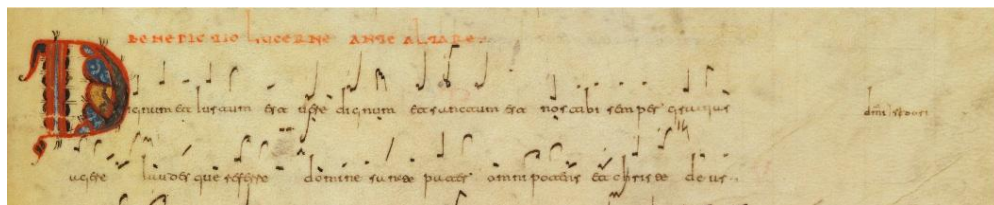 BENEDICTIO LUCERNE ANTE ALTARE
Dignum et iustum est vere dignum et sanctum est nos tibi semper gratias
agere laudes que referre domine sancte pater omnipotens et christe deus